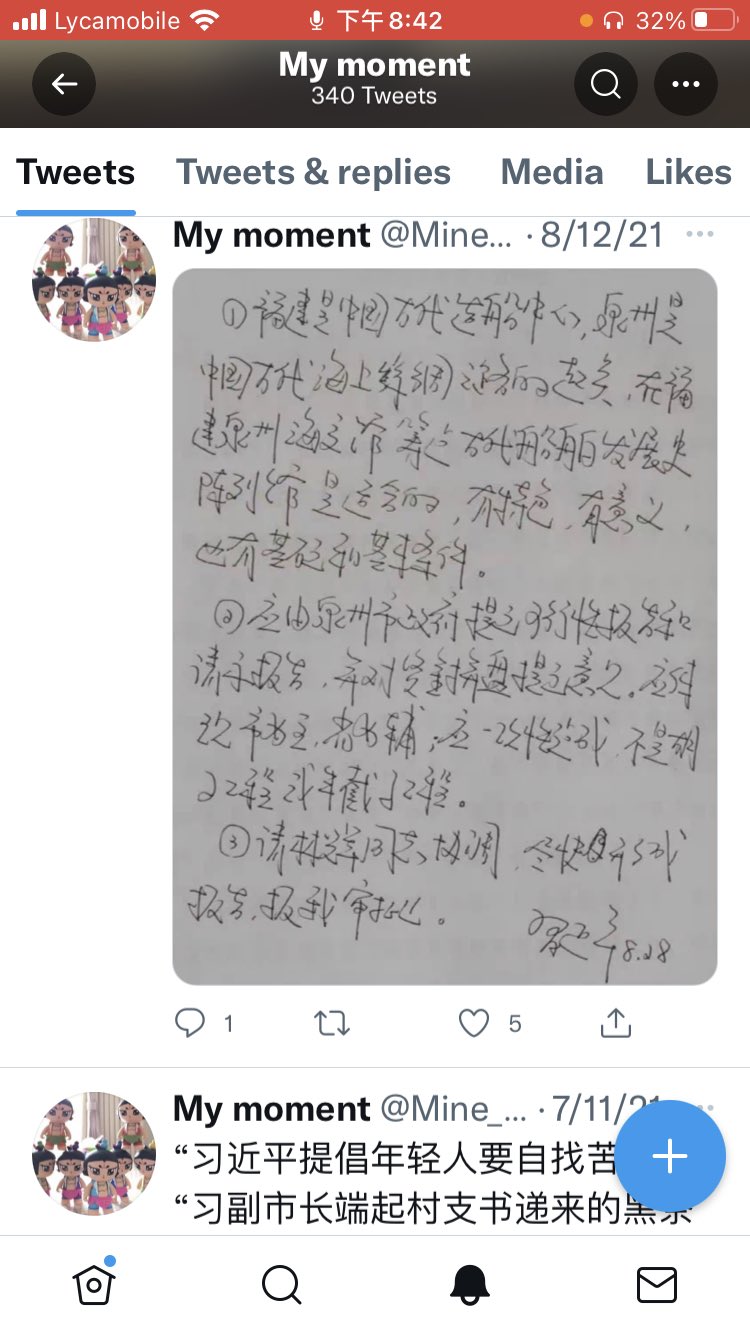 Lycamobile 下午8:42 32%
My moment
340 Tweets
Tweets Tweets & replies Media Likes
My moment @Mine... · 8/12/21
①福建是中国古代造船中心,泉州是
中国古代海上丝绸之路的起点,在福
建泉州海交馆筹建古代船舶发展史
陈列馆是适合的,有特色,有意义,
也有基础和基本条件。
②应由泉州市政府提可行性报告和
请示报告,并对资金拼盘提出意见。应
市为主,省为辅;应一次性完成,不是胡
子工程或半截子工程。
③请 同志协调,尽快 形成
报告,报我审批。
习近平 8.28
1 5
My moment @Mine_... · 7/11/21
“习近平提倡年轻人要自找苦
“习副市长端起村支书递来的黑茶